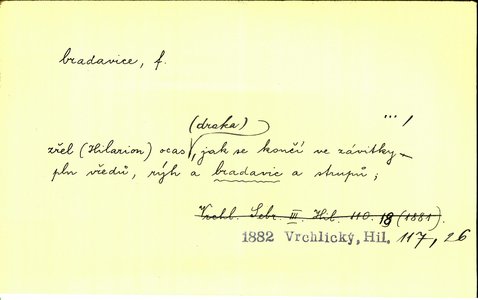 bradavice, f.
(draka)
zřel (Hilarion) ocas, jak se končí ve závitky
pln vředů, rýh a bradavic a strupů;
Vrchl. Sebr. III. Hil. 110. 18 (1881).
1882 Vrchlický, Hil. 117, 26